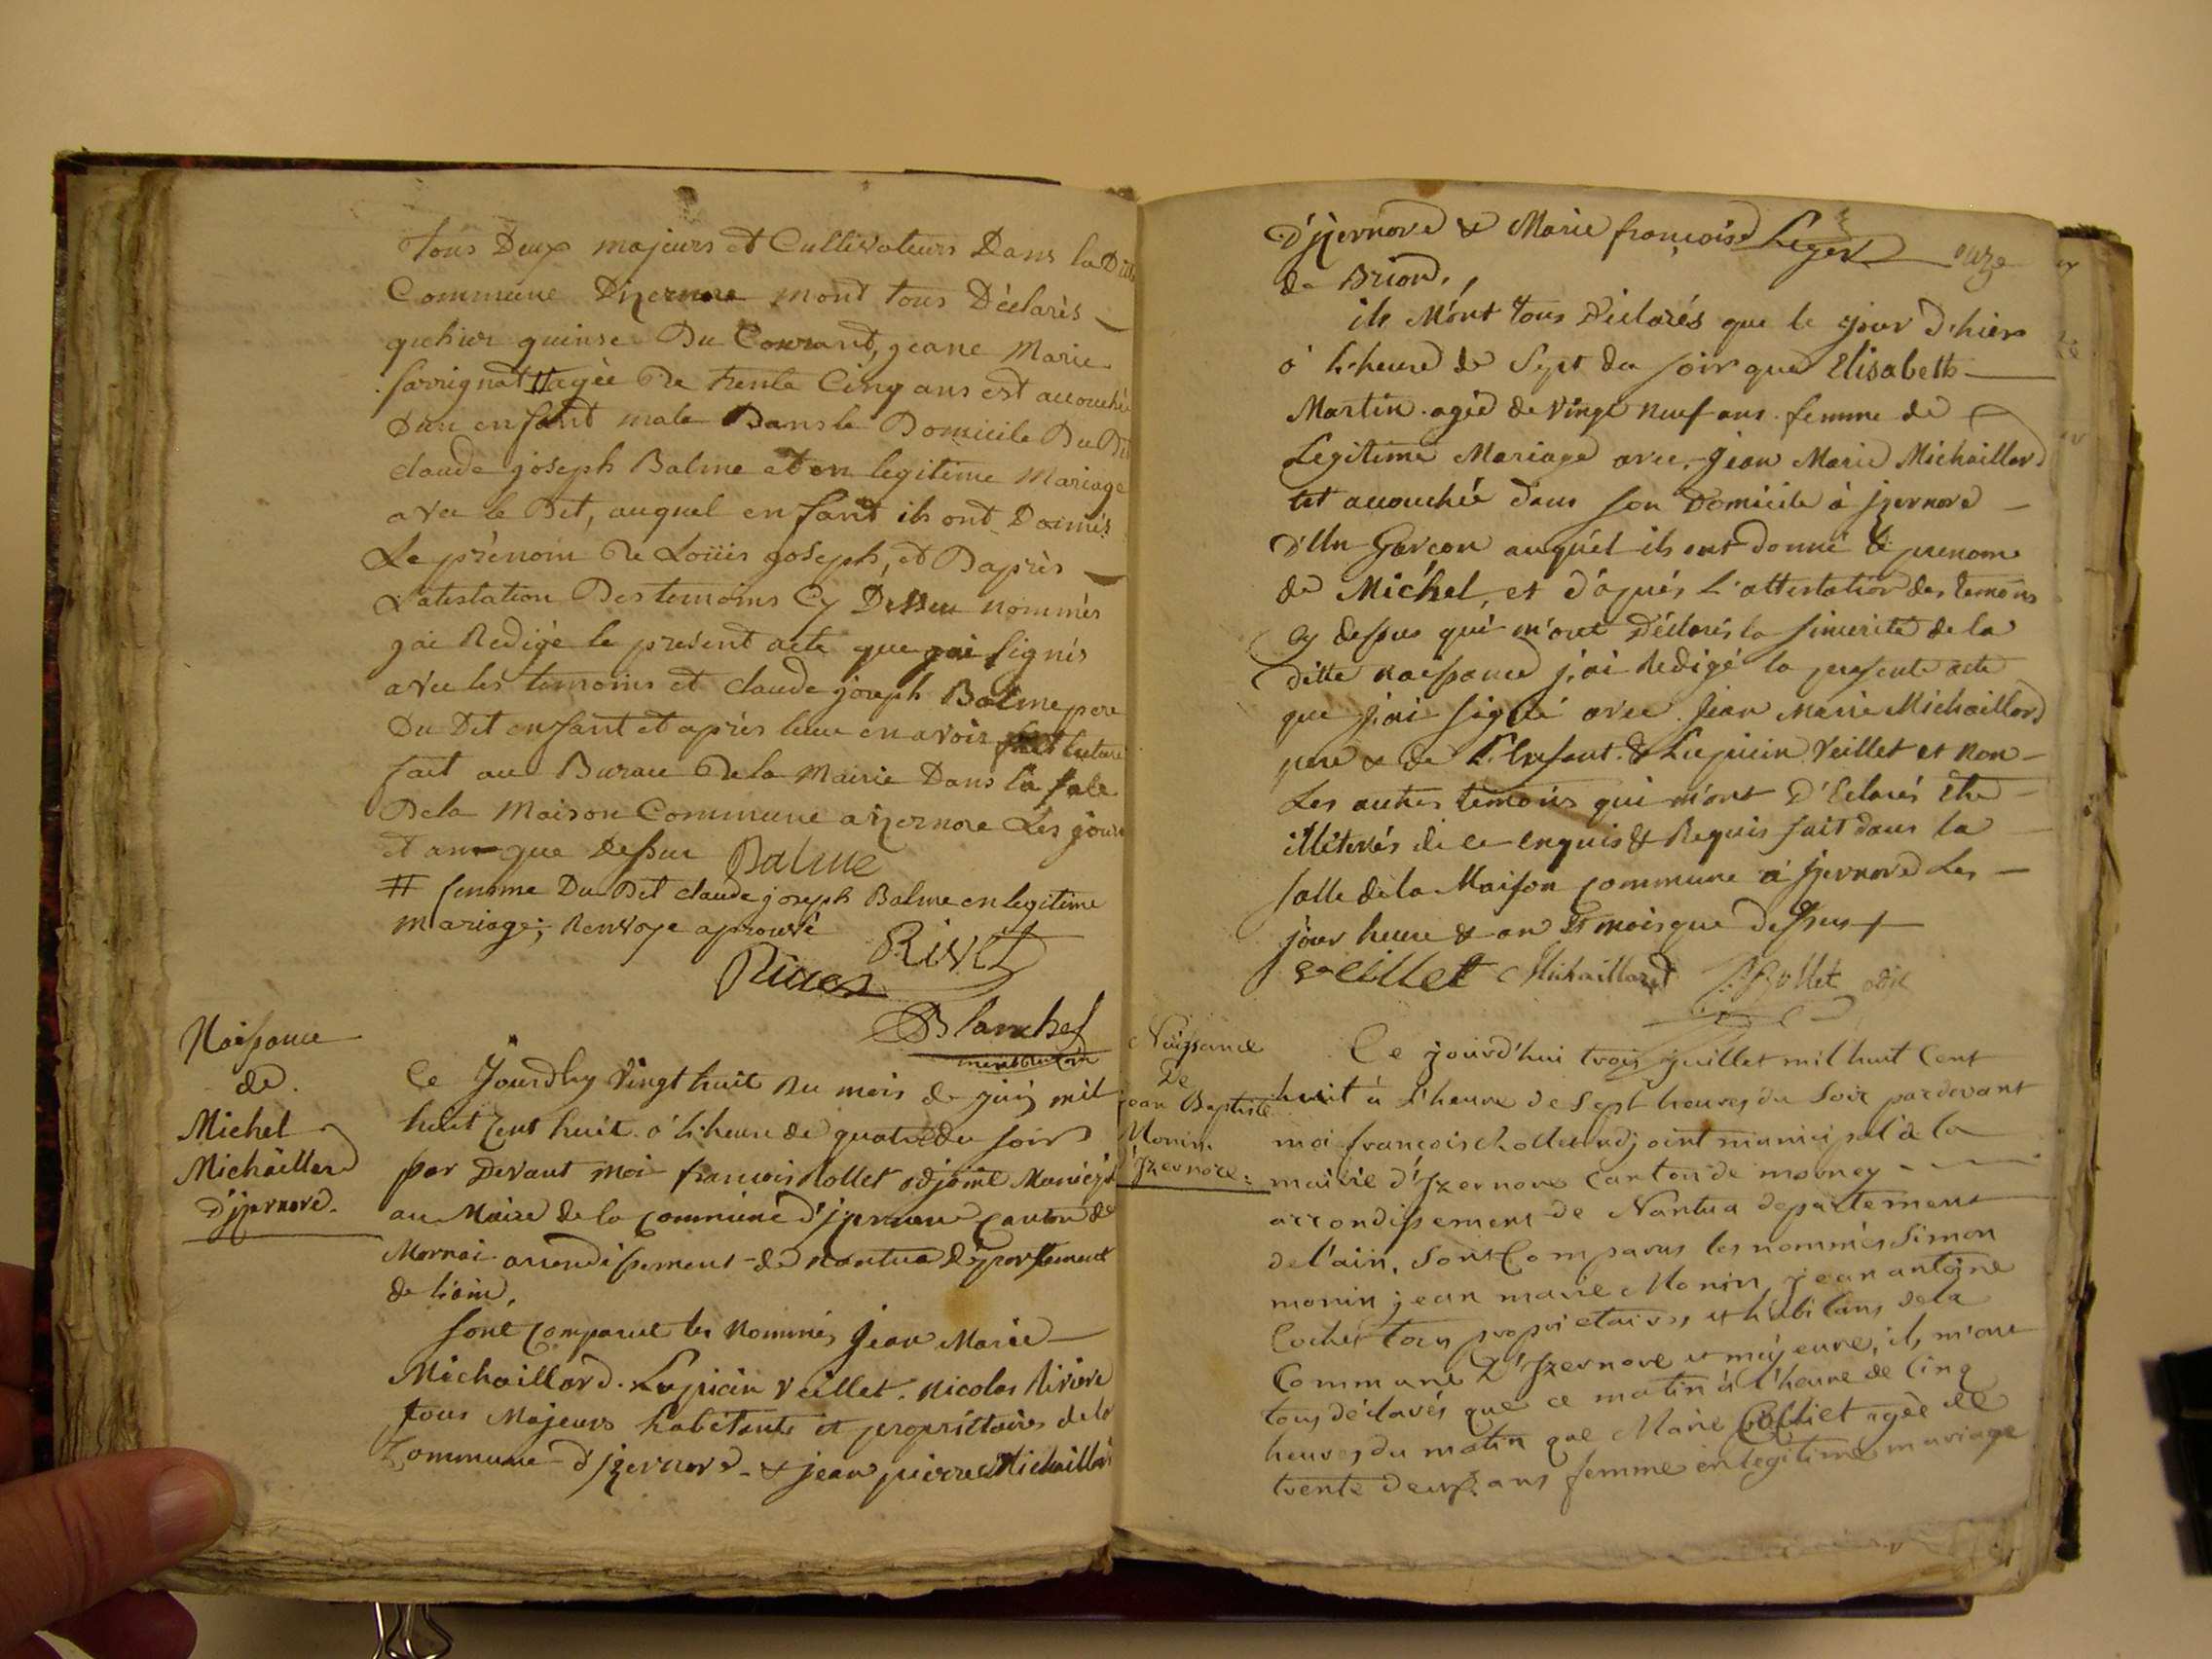 Tous Deux majeurs et Cultivateurs Dans la Ditte
Commune Dizernore mont tous Déclarés
quhier quinse Du Courant, jeane Marie
# agée De trente Cinq ans est accouchée
Dun enfant male Dans le Domicile Du Dit
claude joseph Balme et en legitime Mariage
avec le Dit, auquel enfant ils ont Donnés
Le prénom De Loüis joseph, et Daprès
Latestation Des temoins Cy Dessu nommés
jai Redigé le présent acte que jai signés
avec les temoins et claude joseph Balme pere
Du Dit enfant et après leur en avoir fait lecture
fait au Bureau De la Mairie Dans la sale
De la Maison Commune a izernore Les jour
et an que Dessus Balme
# femme Du Dit claude joseph Balme en legitime
mariage; Renvoye aprouvé
Rivet
Blanchet
Naissance
de
Michel
Michaillard
d'jzernore.
Ce Jourdhuy Vingt huit du mois de juin mil
huit Cent huit à L'heure de quatre du soir
par Devant moi francois Rollet adjoint Municipal
au Maire de la commune d'jzernore Canton de
Mornai arrondissement de nantua département
de l'ain,
Sont Comparut les Nommés Jean Marie
Michaillard. Lupicin Veillet. Nicolas Riviere
tous Majeurs habitants et propriettaires de la
Commune d'jzernore & jean pierre Michaillard
D'jzernore & Marie françoise Leger
de Briond,
onze
ils M'ont tous Déclarés que le jour d'hiers
à L'heure de Sept du soir que Elisabeth
Martin agée de Vingt neuf ans femme de
Legitime Mariage avec Jean Marie Michaillard
est accouchée dans son Domicile à jzernore
D'Un Garçon auquel ils ont donné le prenom
de Michel, et d'après L'attestation des temoins
Cy dessus qui m'ont Déclarés la sincerité de la
ditte naissance j'ai Redigé la presente acte
que j'ai signé avec Jean Marie Michaillard
pere & de L'Enfant & Lupicin Veillet et non
Les autres temoins qui m'ont D'Eclarés Etre
illiterés de ce enquis & Requis fait dans la
salle de la Maison commune à jzernore Les
jour heure & an & mois que dessus
veillet Michaillard f. Rollet adjt
Naissance
De
jean Baptiste
Monin
d'Izernore.
Ce jourd'hui trois juillet mil huit Cent
huit à l'heure de Sept heures du Soir pardevant
moi françois Rollet adjoint municipal de la
mairie d'Izernore Canton de mornay
arrondissement de Nantua departement
de l'ain, Sont Comparus les nommés Simon
monin jean marie Monin, jean antoine
Cochet tous proprietaires et habitans de la
Commune d'Izernore et majeure, ils m'ont
tous déclarés que ce matin à l'heure de Cinq
heures du matin que Marie agèe de
trente deux ans femme en legitime mariage